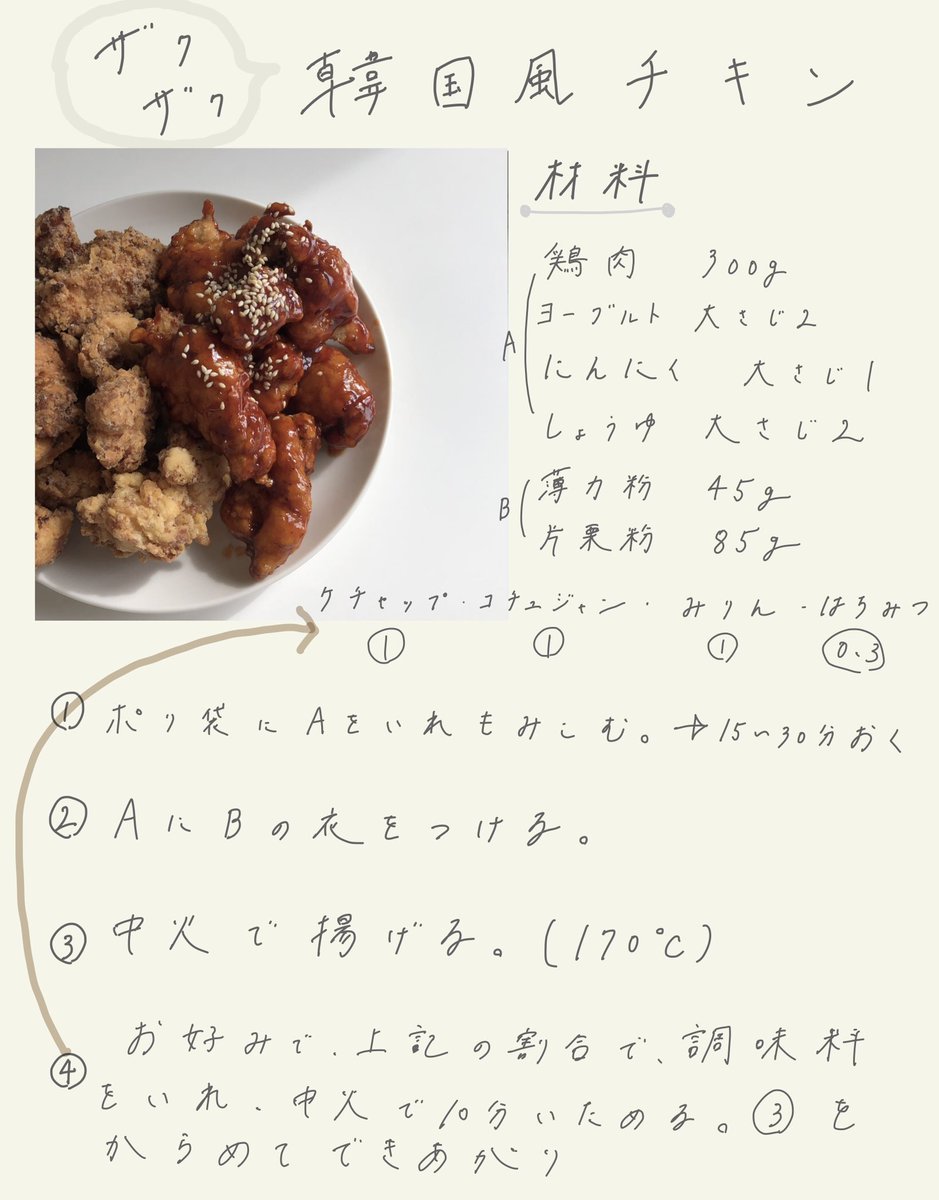 ザク
ザク
韓国風チキン
材料
鶏肉 300g
ヨーグルト 大さじ2
A
にんにく 大さじ1
しょうゆ 大さじ2
薄力粉 45g
B
片栗粉 85g
ケチャップ・コチュジャン・みりん・はちみつ
① ① ① 0.3
① ポリ袋にAをいれもみこむ。→15〜30分おく
② AにBの衣をつける。
③ 中火で揚げる。(170℃)
④ お好みで、上記の割合で、調味料
をいれ、中火で10分いためる。③を
からめてできあがり